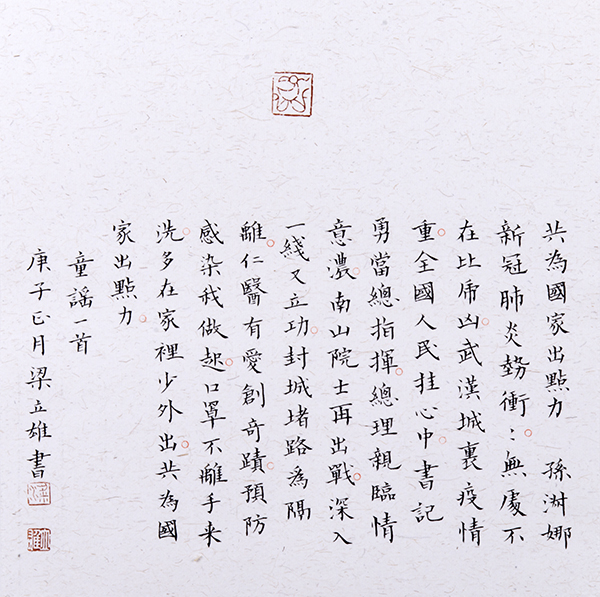 共為國家出點力 孫娜
新冠肺炎勢衝〻無處不
在比虎凶武漢城裏疫情
重全國人民挂心中書記
勇當總指揮總理親臨情
意濃南山院士再出戰深入
一綫又立功封城堵路為隔
離仁醫有愛創奇蹟預防
感染我做起口罩不離手来
洗多在家裡少外出共為國
家出點力
童謡一首
庚子正月梁立雄書